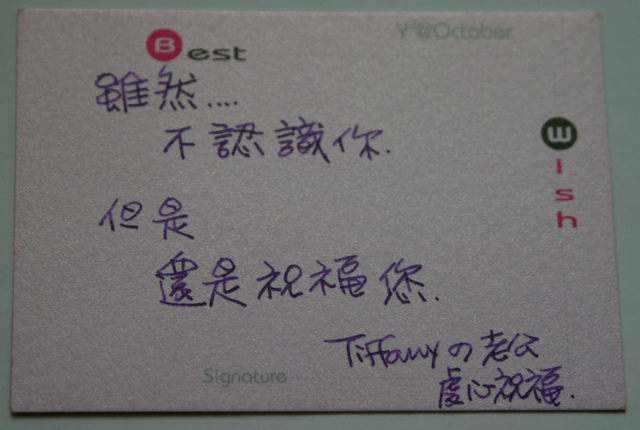 Best
Y2@October
雖然....
不認識你.
但是
還是祝福您.
Wish
Tiffany の老公
虔心祝福.
Signature